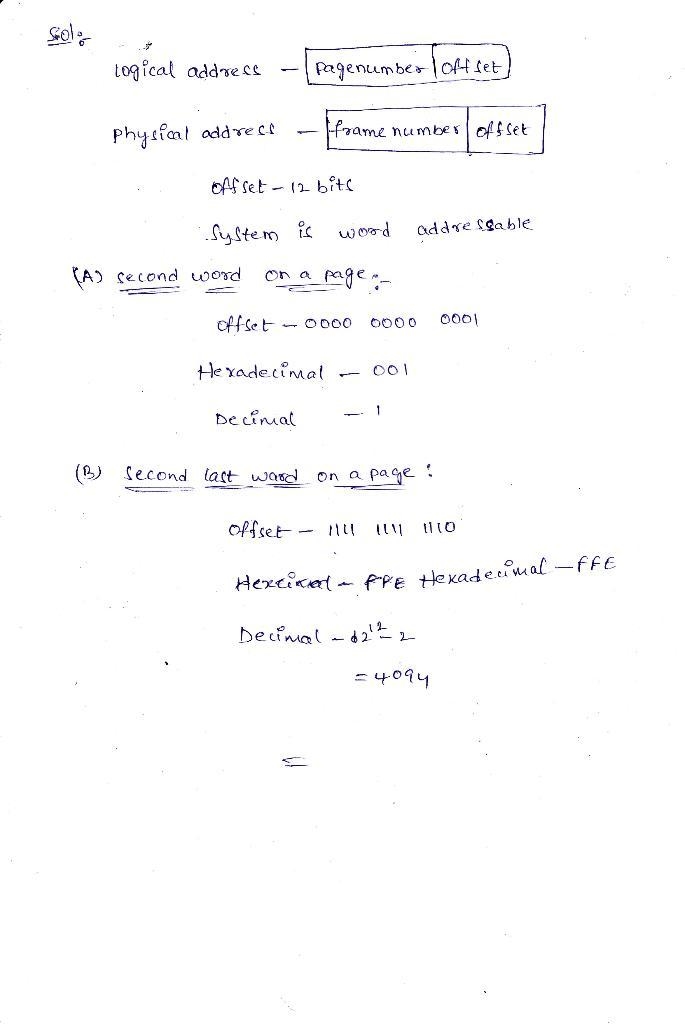 Sol:
Logical address - pagenumber offset
Physical address - frame number offset
offset - 12 bits
System is word addressable
(A) second word on a page:-
offset - 0000 0000 0001
Hexadecimal - 001
Decimal - 1
(B) Second last word on a page :
Offset - 1111 1111 1110
Hexadecimal - FFE
Decimal - 2^12 - 2
= 4094
=